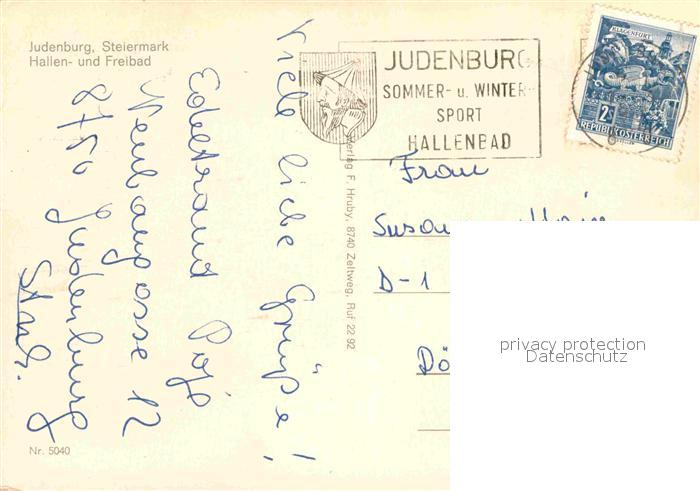 Judenburg, Steiermark
Hallen- und Freibad
Viele liebe Grüße!
Edeltraud
Neubaugasse 12
8750 Judenburg
Nr. 5040
Verlag F. Hruby, 8740 Zeltweg, Ruf 22 92
JUDENBURG
SOMMER- u. WINTER-
SPORT
HALLENBAD
KLAGENFURT
2S
REPUBLIK ÖSTERREICH
Frau
D-1
Dö
privacy protection
Datenschutz